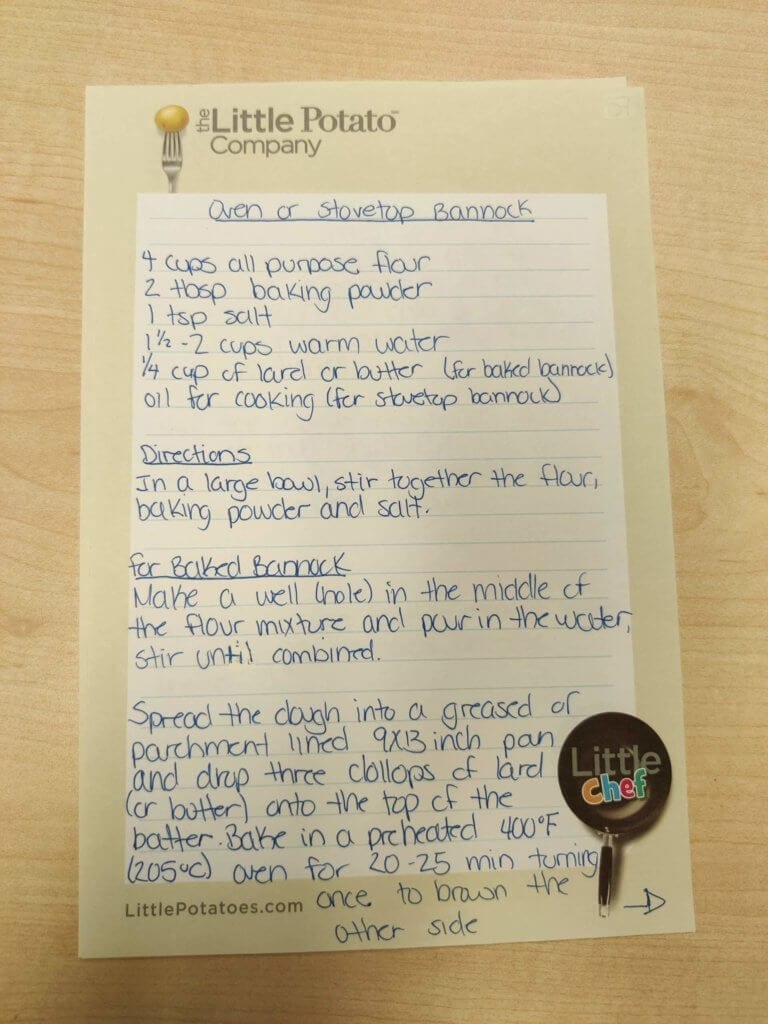 the Little Potato™
Company
Oven or Stovetop Bannock
4 cups all purpose flour
2 tbsp baking powder
1 tsp salt
1 1/2 - 2 cups warm water
1/4 cup of lard or butter (for baked bannock)
oil for cooking (for stovetop bannock)
Directions
In a large bowl, stir together the flour,
baking powder and salt.
for Baked Bannock
Make a well (hole) in the middle of
the flour mixture and pour in the water,
stir until combined.
Spread the dough into a greased or
parchment lined 9X13 inch pan
and drop three dollops of lard
(or butter) onto the top of the
batter. Bake in a preheated 400°F
(205°C) oven for 20-25 min turning
once to brown the
other side
Little
chef
LittlePotatoes.com